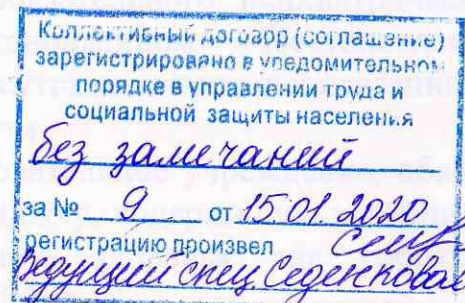 Коллективный договор (соглашение)
зарегистрировано в уведомительном
порядке в управлении труда и
социальной защиты населения
без замечаний
за № 9 от 15.01.2020
регистрацию произвел
Ведущий спец